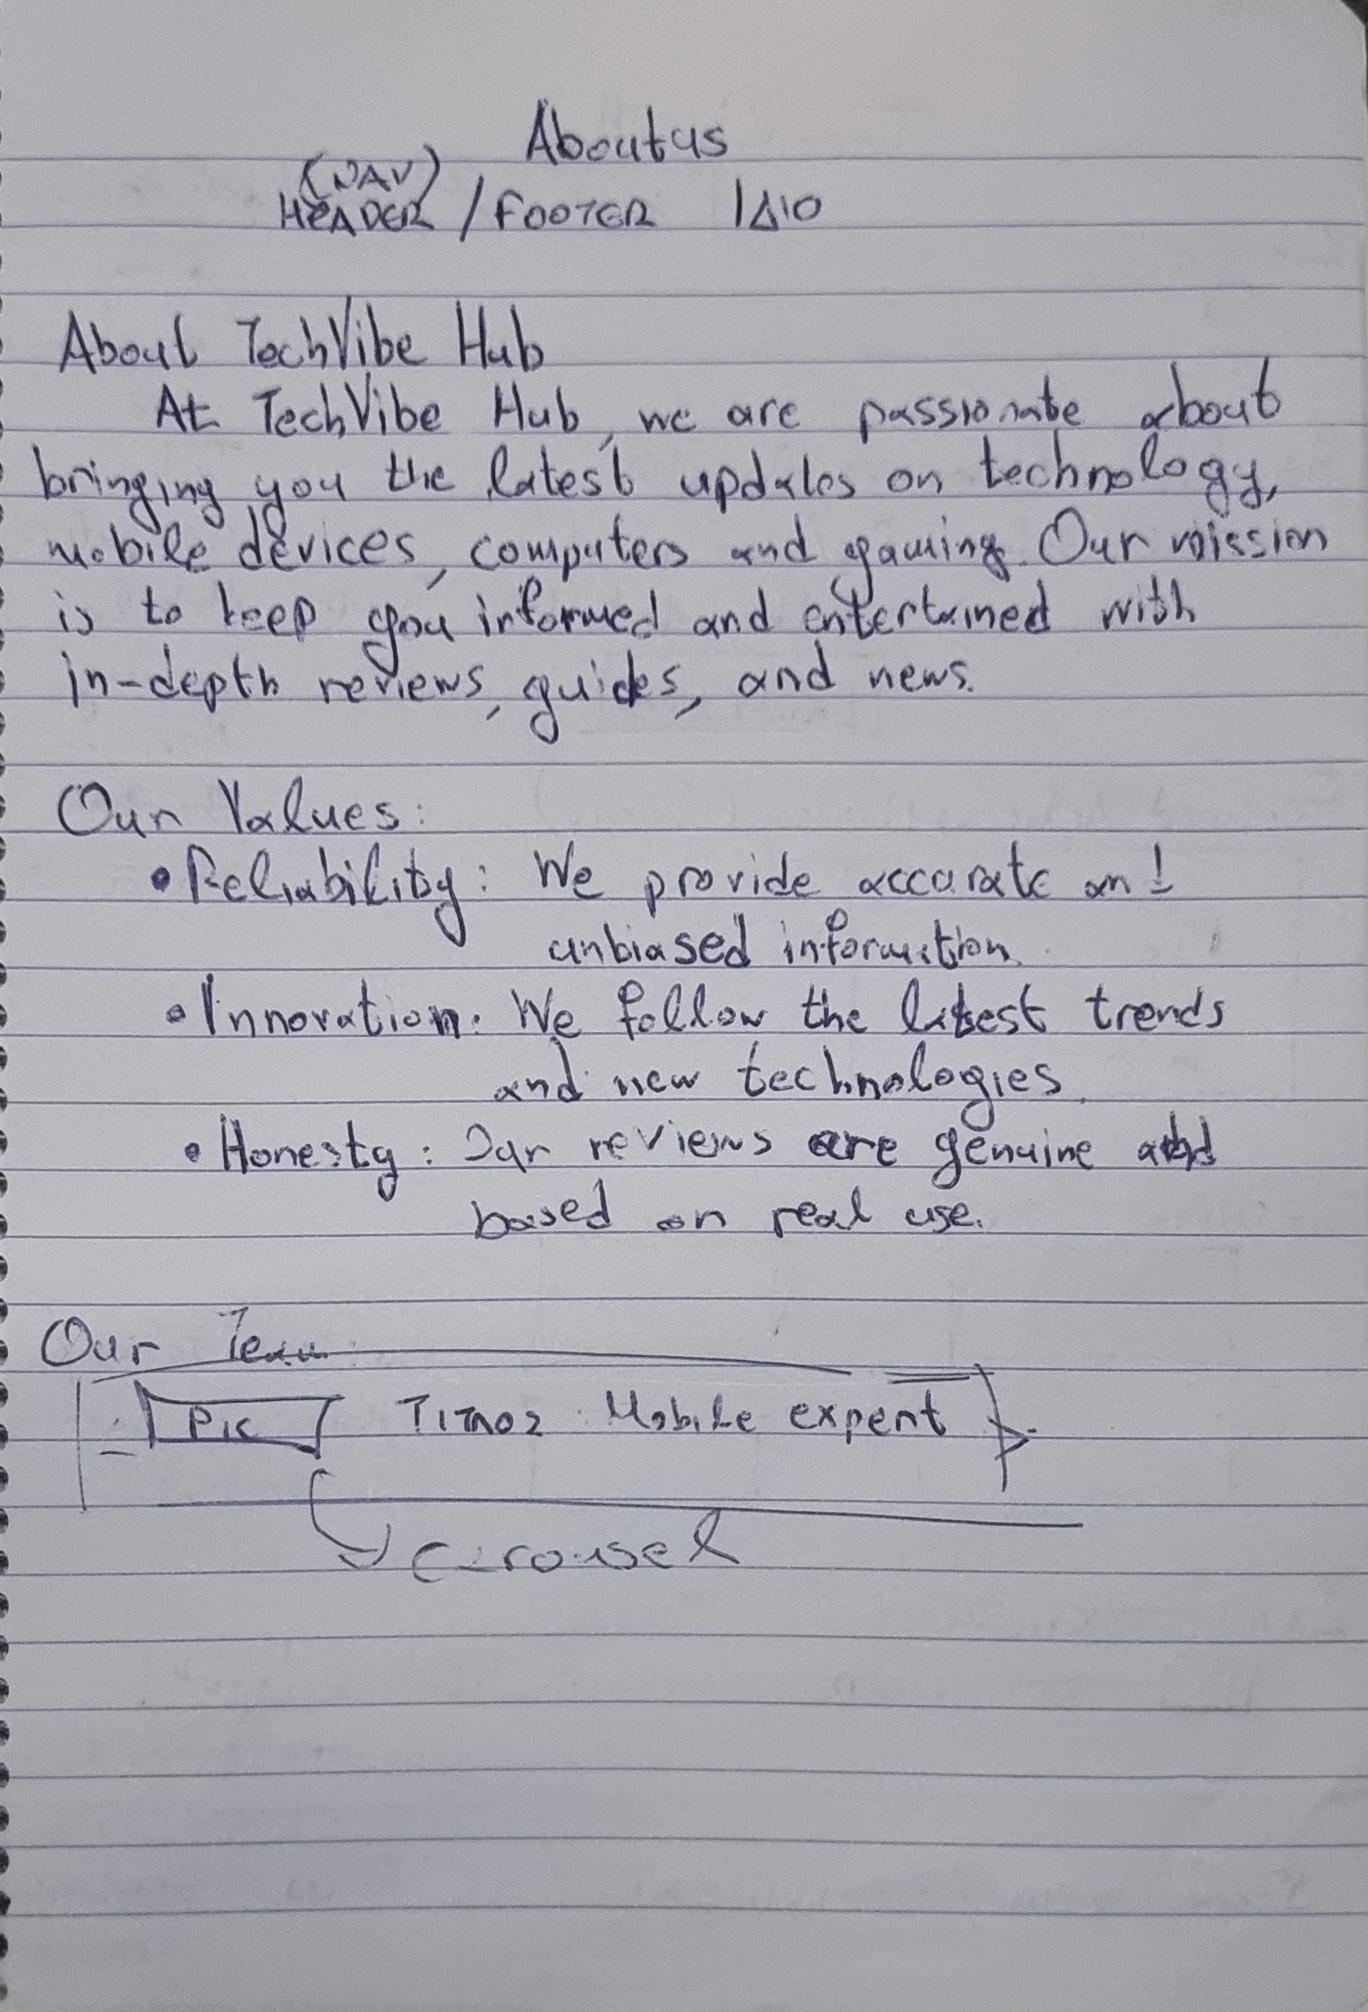 About us
(NAV)
HEADER / FOOTER ΙΔΙΟ
About TechVibe Hub
At TechVibe Hub, we are passionate about
bringing you the latest updates on technology,
mobile devices, computers and gaming. Our mission
is to keep you informed and entertained with
in-depth reviews, guides, and news.
Our Values:
• Reliability: We provide accurate and
unbiased information.
• Innovation: We follow the latest trends
and new technologies.
• Honesty: Our reviews are genuine and
based on real use.
Our Team:
Pic Titnoz: Mobile expert
carousel